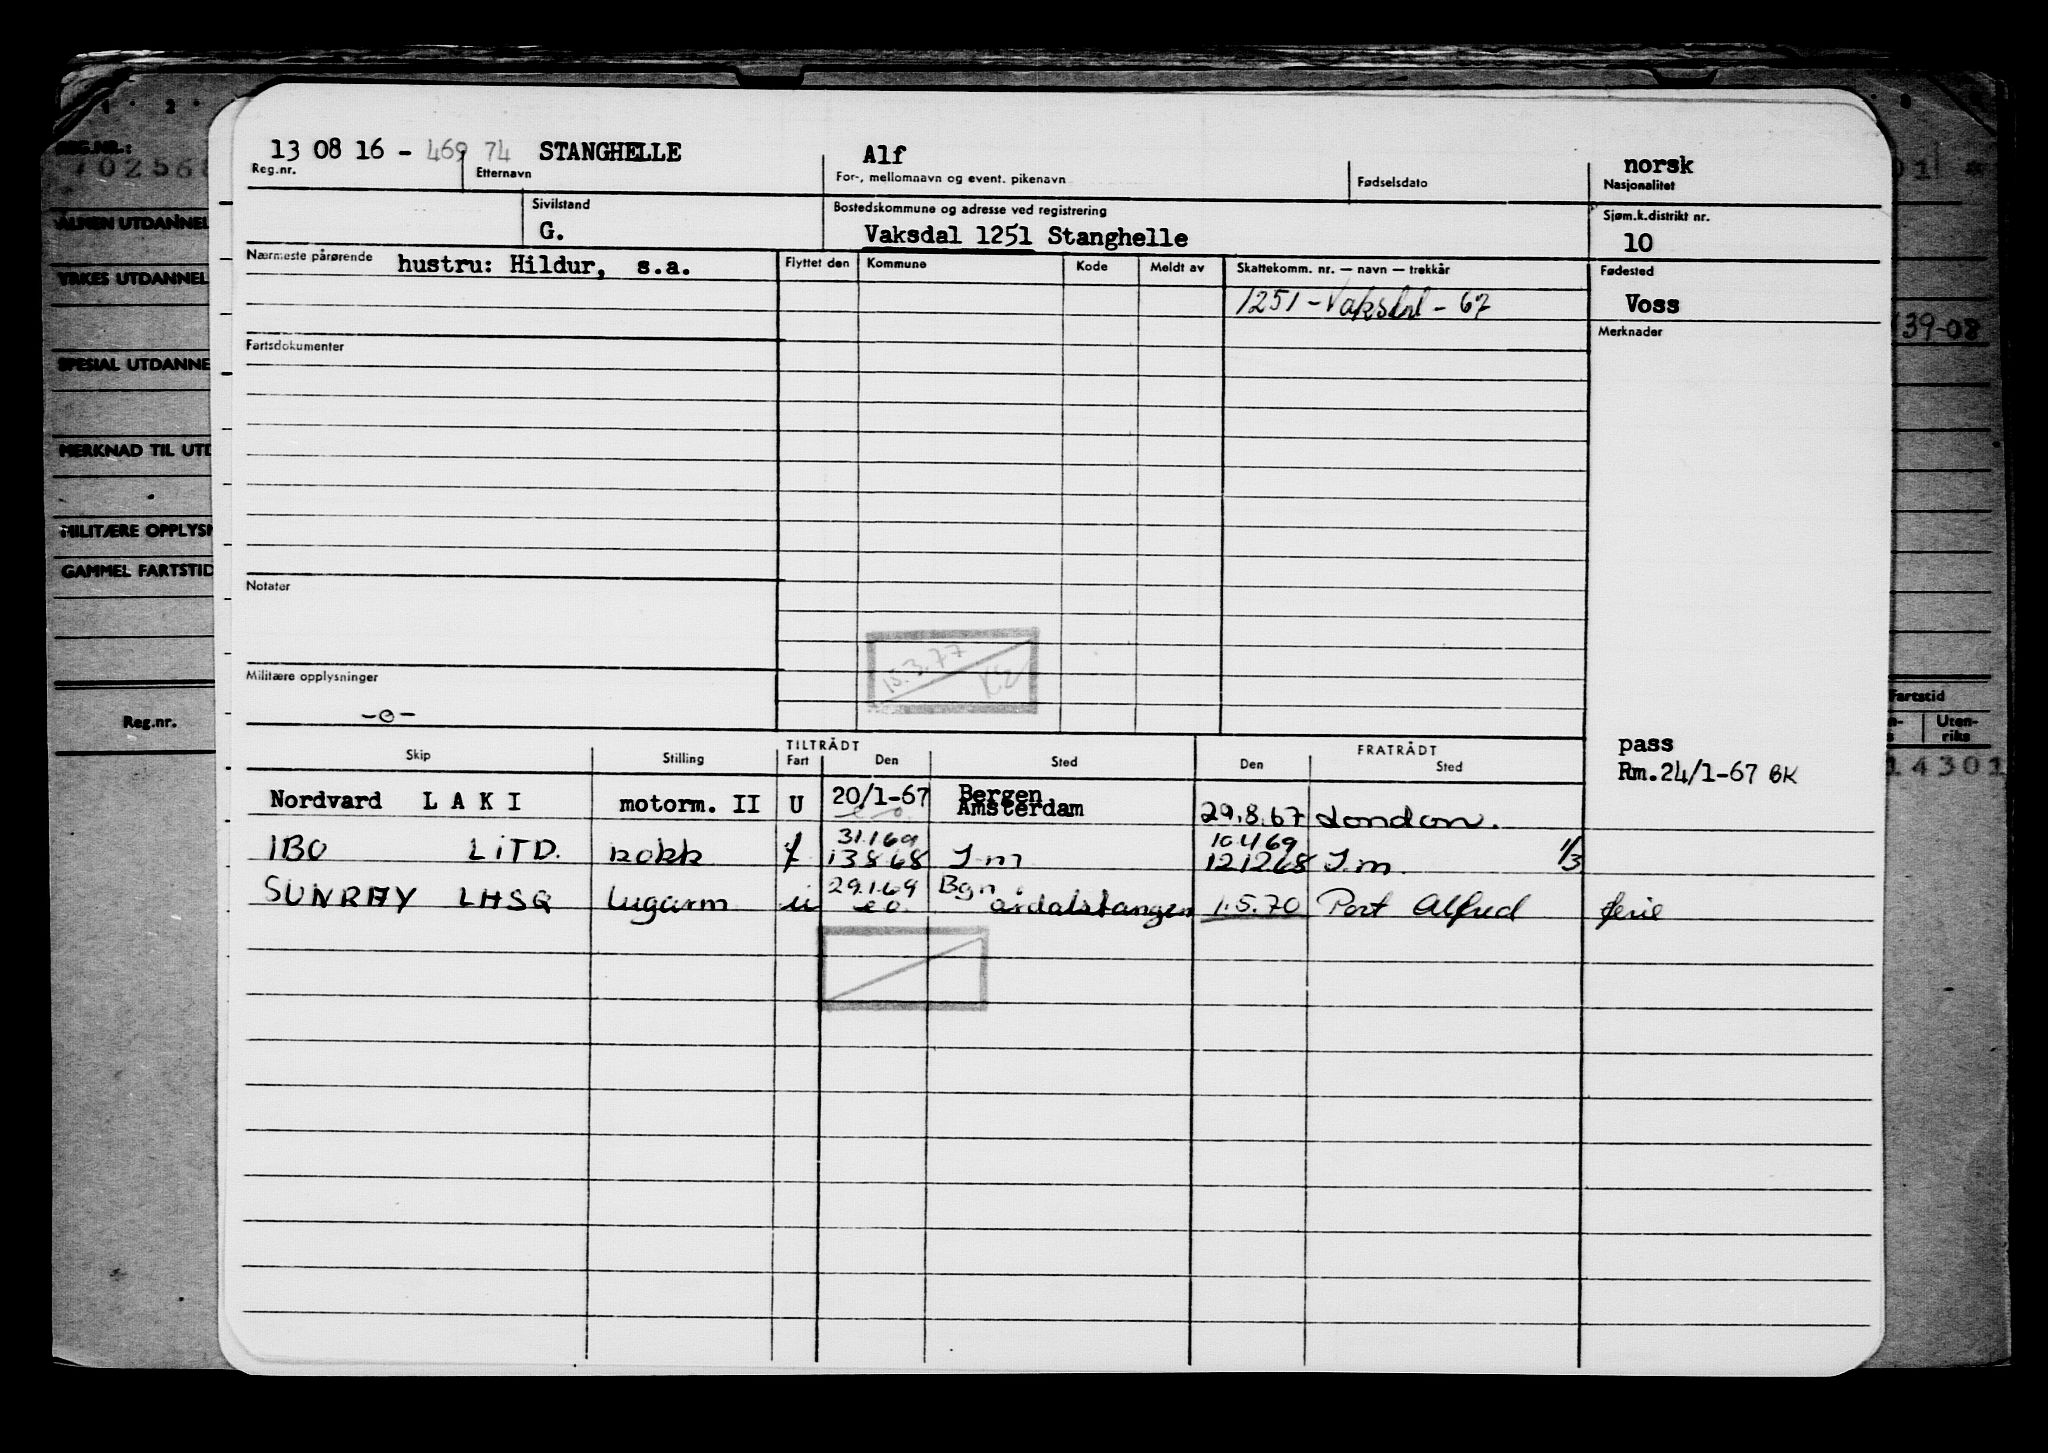 13 08 16 - 469 74 STANGHELLE Alf norsk
Reg.nr. Etternavn For-, mellomnavn og event. pikenavn Fødselsdato Nasjonalitet
Sivilstand Bostedskommune og adresse ved registrering Sjøm.k.distrikt nr.
G. Vaksdal 1251 Stanghelle 10
Nærmeste pårørende hustru: Hildur, s.a. Flyttet den Kommune Kode Meldt av Skattekomm. nr. — navn — trekkår Fødested
1251 - Vaksdal - 67 Voss
Fartsdokumenter Merknader
Notater
15.3.77
Militære opplysninger
-o-
TILTRÅDT FRATRÅDT pass
Skip Stilling Fart Den Sted Den Sted Rm.24/1-67 BK
Nordvard L A K I motorm. II U 20/1-67 Bergen
Amsterdam 29.8.67 London.
31.1.69 10.4.69
IBO LITD. kokk 13.8.68 I.m 12.12.68 I.m. 1/3
29.1.69 Bgn
SUNRAY LHSQ lugarm u e.o. årdalstangen 1.5.70 Port Alfred ferie
REG.NR.:
ALMEN UTDANNEL
YRKES UTDANNEL
SPESIAL UTDANNE
MERKNAD TIL UTD
MILITÆRE OPPLYSN
GAMMEL FARTSTID
Reg.nr.
139-08
Fartstid
Uten-
riks
14301